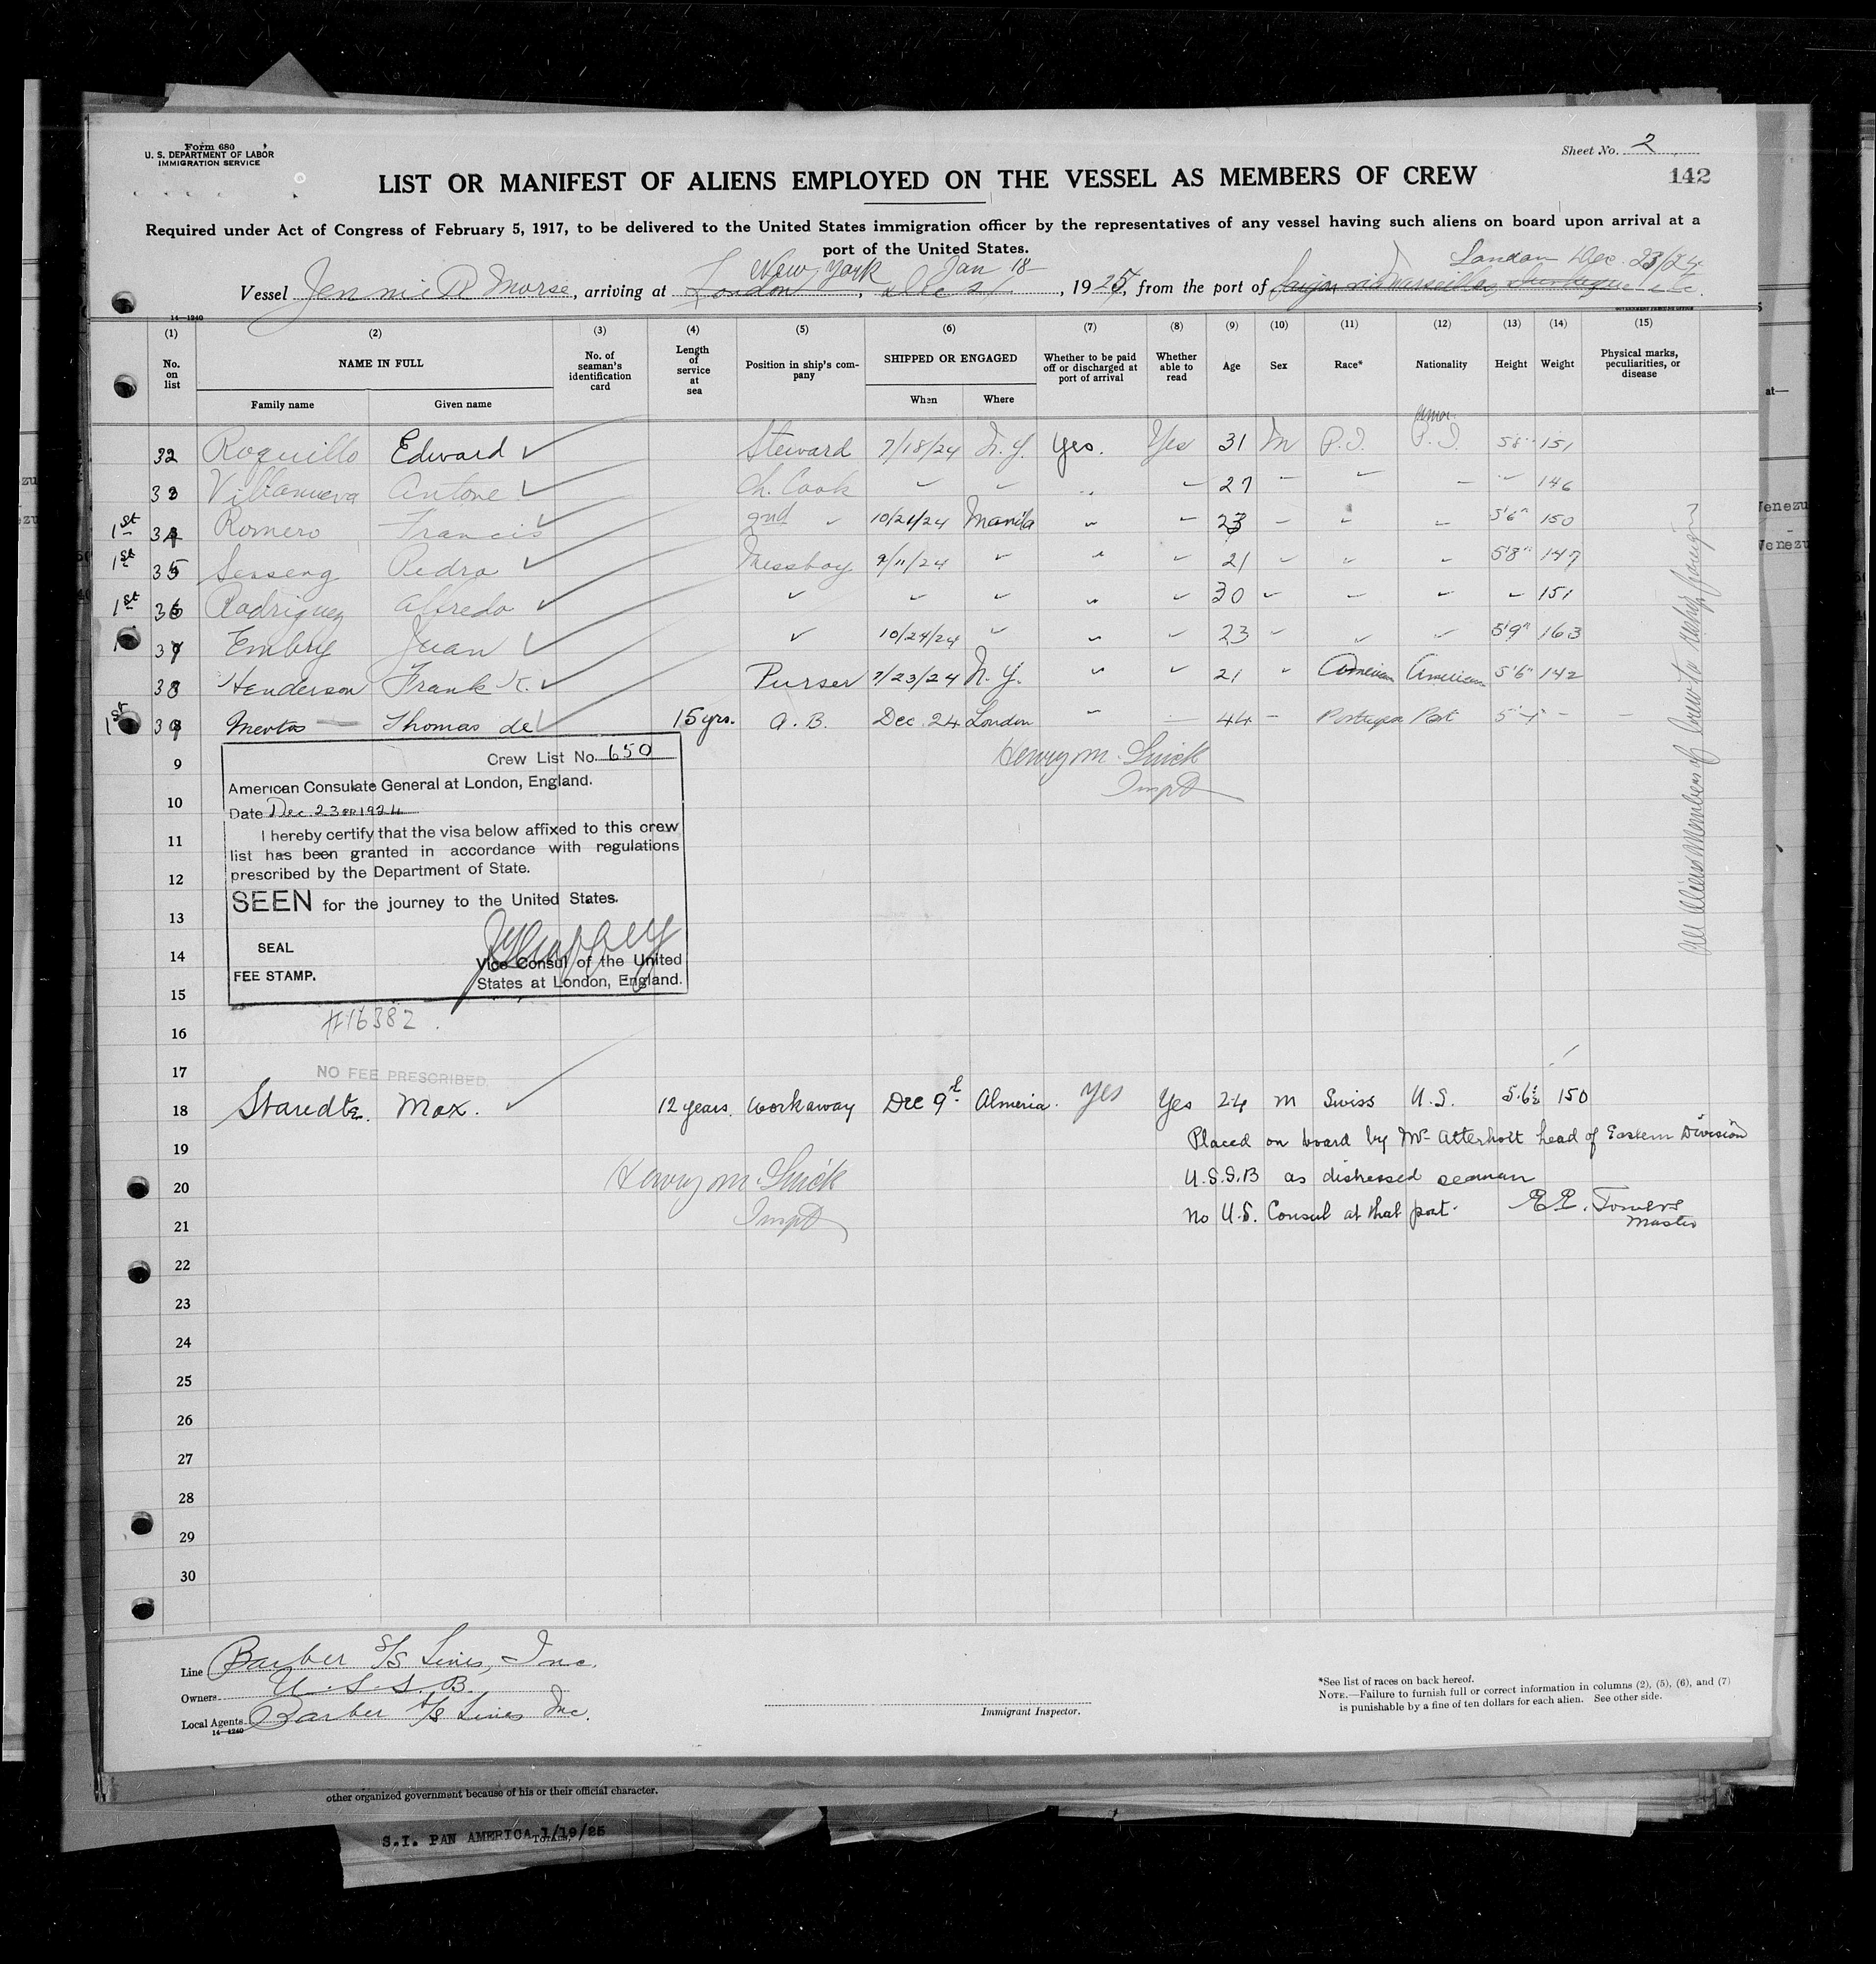 Form 680
U. S. DEPARTMENT OF LABOR
IMMIGRATION SERVICE
Sheet No. 2
142
LIST OR MANIFEST OF ALIENS EMPLOYED ON THE VESSEL AS MEMBERS OF CREW
Required under Act of Congress of February 5, 1917, to be delivered to the United States immigration officer by the representatives of any vessel having such aliens on board upon arrival at a
port of the United States.
New York Jan 18 London Dec. 23/24
Vessel Jennie R Morse, arriving at London, Dec 21, 1925, from the port of Saigon via Marseilles Dunkerque etc.
14—1240
(1) (2) (3) (4) (5) (6) (7) (8) (9) (10) (11) (12) (13) (14) (15)
No. on list NAME IN FULL No. of seaman's identification card Length of service at sea Position in ship's company SHIPPED OR ENGAGED Whether to be paid off or discharged at port of arrival Whether able to read Age Sex Race* Nationality Height Weight Physical marks, peculiarities, or disease
Family name Given name When Where
Amer.
32 Roquillo Edward ✓ Steward 7/18/24 N.Y. Yes. Yes 31 M P.I. P.I. 5'8" 151
33 Villanueva Antone ✓ Ch. Cook " " " " 27 " " " " 146
1st 34 Romero Francis ✓ 2nd " 10/21/24 Manila " " 23 " " " 5'6" 150
1st 35 Pedro ✓ Messboy 9/11/24 " " " 21 " " " 5'8" 147
1st 36 Rodriguez Alfredo ✓ " " " " " 30 " " " " 151
37 Embry Juan ✓ " 10/24/24 " " " 23 " " " 5'9" 163
38 Henderson Frank K. ✓ Purser 7/23/24 N.Y. " " 21 " American American 5'6" 142
1st 39 Thomas de ✓ 15 yrs. A.B. Dec. 24 London " 44 Port
Henry M. Guick
Insptr
9
10
11
12
13
14
15
16
17
Crew List No. 650
American Consulate General at London, England.
Date Dec. 23rd 1924
I hereby certify that the visa below affixed to this crew
list has been granted in accordance with regulations
prescribed by the Department of State.
SEEN for the journey to the United States.
SEAL
FEE STAMP.
Vice Consul of the United
States at London, England.
#16382.
NO FEE PRESCRIBED.
18 Max. ✓ 12 years. workaway Dec 9th Almeria. Yes Yes 24 M Swiss U.S. 5.6½ 150
19 Placed on board by Mr Atterholt head of Eastern Division
20 U.S.S.B as distressed seaman
21 No U.S. Consul at that port. E.E. Towers
Master
Henry M. Guick
Insptr
22
23
24
25
26
27
28
29
30
Line Barber S/S Lines, Inc.
Owners U. S. S. B.
Local Agents Barber S/S Lines Inc.
14—1240
Immigrant Inspector.
*See list of races on back hereof.
NOTE.—Failure to furnish full or correct information in columns (2), (5), (6), and (7)
is punishable by a fine of ten dollars for each alien. See other side.
other organized government because of his or their official character.
S.I. PAN AMERICA 1/19/25